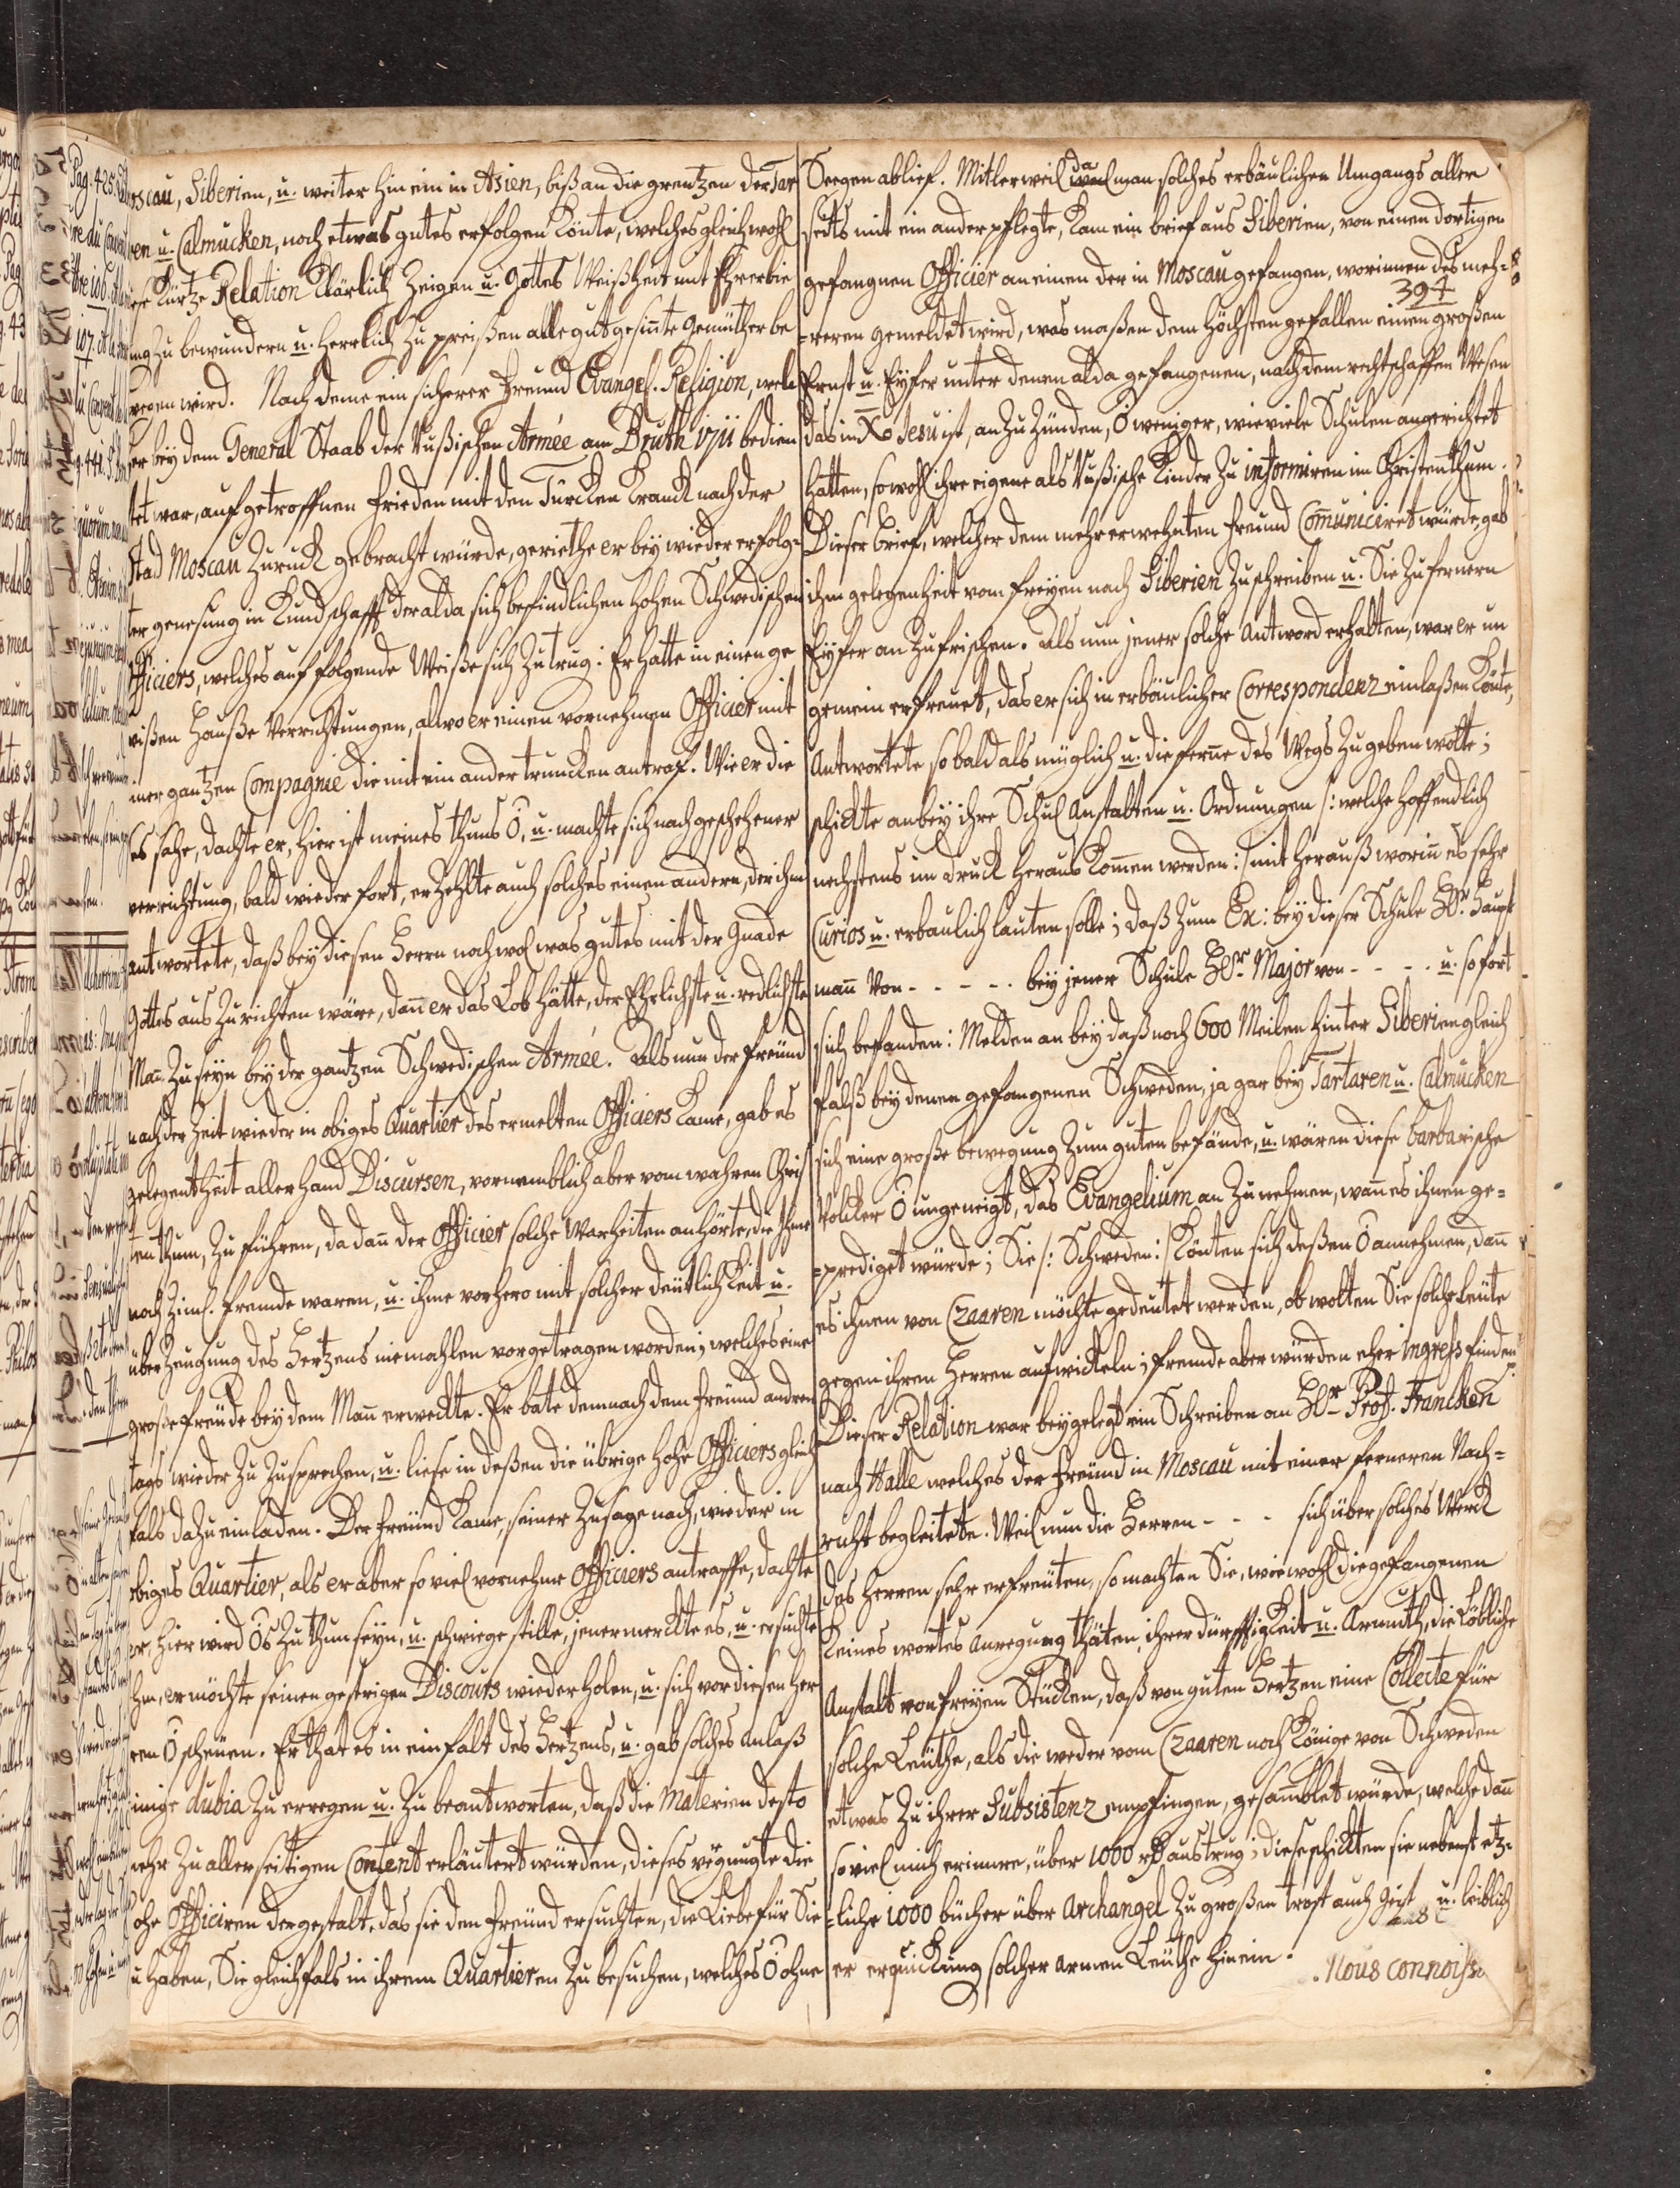 oscau, Siberien, u. weiter hin ein in Asien, biß an die grentzen der Tar
ren u. Calmucken, noch etwas gutes erfolgen könte, welches gleichwohl
iese kurtze Relation klärlich zeigen u. Gottes Weißheit mit Ehrerbie
ung zu bewundern u. herrlich zu preißen alle gut gesinte Gemüther be
wegen wird. Nach deme ein sicherer Freund Evangel. Religion, wel
er bey dem General Staab der Rußischen Armée am Pruth 1711 bedien
tet war, auf getroffnen Frieden mit den Türcken kranck nach der
Stad Moscau zuruck gebracht würde, geriethe er bey wieder erfolg=
ter genesung in Kundschafft der alda sich befindlichen hohen Schwedischen
fficiers, welches auf folgende Weiße sich zutrug: Er hatte in einen ge
wißen Hauße Verrichtungen, allwo er einen vornehmen Officier mit
iner gantzen Compagnie die mit ein ander truncken antraf. Wie er die
es sahe, dachte er, hier ist meines thuns O, u. machte sich nach geschehener
verrichtung, bald wieder fort, erzehlte auch solches einen andern, der ihm
antwortete, daß bey diesen Herrn noch wol was gutes mit der Gnade
Gottes aus zu richten wäre, dan er das Lob hätte, der Ehrlichste u. redlichste
Man zu seyn bey der gantzen Schwedischen Armée. Als nun der Freund
nach der Zeit wieder in obiges Quartier des ermelten Officiers kame, gab es
gelegentheit aller hand Discursen, vornemblich aber vom wahren Chris
tenthum, zu führen, da dan der Officier solche Warheiten anhörte, die ihme
noch ziml. fremde waren, u. ihme vorhero mit solcher deütlichkeit u.
überzeugung des Hertzens niemahlen vorgetragen worden; welches eine
große freude bey dem Man erweckte. Er bate demnach dem Freund andren
tags wieder zu zusprechen, u. liese in deßen die übrige hohe Officiers gleich
fals dazu einladen. Der Freund kame, seiner Zusage nach, wieder in
obiges Quartier, als er aber so viel vornehme Officiers antraffe, dachte
er, hier wird O's zu thun seyn, u. schwiege stille, jener merckte es, u. ersuchte
ihm, er möchte seinen gestrigen Discours wieder holen, u. sich vor diesen Her
ren O scheüen. Er that es in einfalt des Hertzens, u. gab solches anlaß
einige dubia zu erregen u. zu beantworten, daß die Materien desto
mehr zu allerseitigen Content erläutert würden, dieses vergnügte die
ohe Officiren dergestalt, das sie den Freund ersuchten, die Liebe für Sie
u haben, Sie gleichfals in ihrem Quartieren zu besuchen, welches O ohne
Seegen ablief. Mitlerweil da man solches erbäulichen Umgangs aller
seits mit ein ander pflegte, kam ein brief aus Siberien, von einen dortigen
gefangnen Officier an einen der in Moscau gefangen, worinnen des meh=
394
=reren gemeldet wird, was maßen dem Höchsten gefallen einen großen
Ernst u. Eyfer unter denen alda gefangenen, nach dem rechtschaffen Wesen
das in Xo Jesu ist, an zu zünden, O weniger, wie viele Schulen angerichtet
hatten, sowohl ihre eigene als Rußische Kinder zu informiren im Christenthum.
Dieser brief, welcher dem mehr erwehnten Freund Comuniciret würde, gab
ihm gelegenheit vom freyen nach Siberien zu schreiben u. Sie zu fernern
Eyfer an zufrischen. Als nun jener solche Antword erhalten, war er un
gemein erfreuet, das er sich in erbäulicher Correspondenz einlaßen könte,
Antwortete so bald als müglich u. die ferne des Wegs zu geben wolte;
schickte anbey ihre Schul Anstalten u. Ordnungen /: welche hoffendlich
nechstens im druck heraus komen werden :/ mit herauß worin es sehr
Curios u. erbaulich lauten solle; daß zum Ex: bey dieser Schule Hr. Haupt
man Von - - - - - bey jener Schule Hr. Major von - - - - u. so fort
sich befanden: Melden an bey daß noch 600 Meilen hinter Siberien gleich
falß bey denen gefangenen Schweden, ja gar bey Tartaren u. Calmucken
sich eine große bewegung zum guten befände, u. wären diese barbarische
Völcker O ungeneigt, das Evangelium an zu nehmen, wan es ihnen ge=
=prediget würde; Sie /: Schweden :/ könten sich deßen O annehmen, dan
es ihnen von Czaaren möchte gedeutet werden, ob wolten Sie solche Leüte
gegen ihren Herren aufwickeln; fremde aber würden eher ingress finden
Dieser Relation war beygelegt ein Schreiben an Hr. Prof. Francken
nach Halle welches der Freund in Moscau mit einer ferneren Nach=
richt begleitete. Weil nun die Herren - - - sich über solches Werck
des Herren sehr erfreüten, so machten Sie, wiewohl die gefangenen
keines wortes anregung thäten, ihrer dürfftigkeit u. Armuth, die Löbliche
Anstalt von freyen Stücken, daß von guten Hertzen eine Collecte für
solche Leüthe, als die weder vom Czaaren noch Könige von Schweden
etwas zu ihrer Subsistenz empfingen, gesamblet würde, welche dan
so viel mich erinnre, über 1000 rh austrug; diese schickten sie nebenst etz=
=liche 1000 bücher über Archangel zu großen trost auch Geist u. leiblich
er erquickung solcher armen Leüthe hin ein.
Nous connoiss